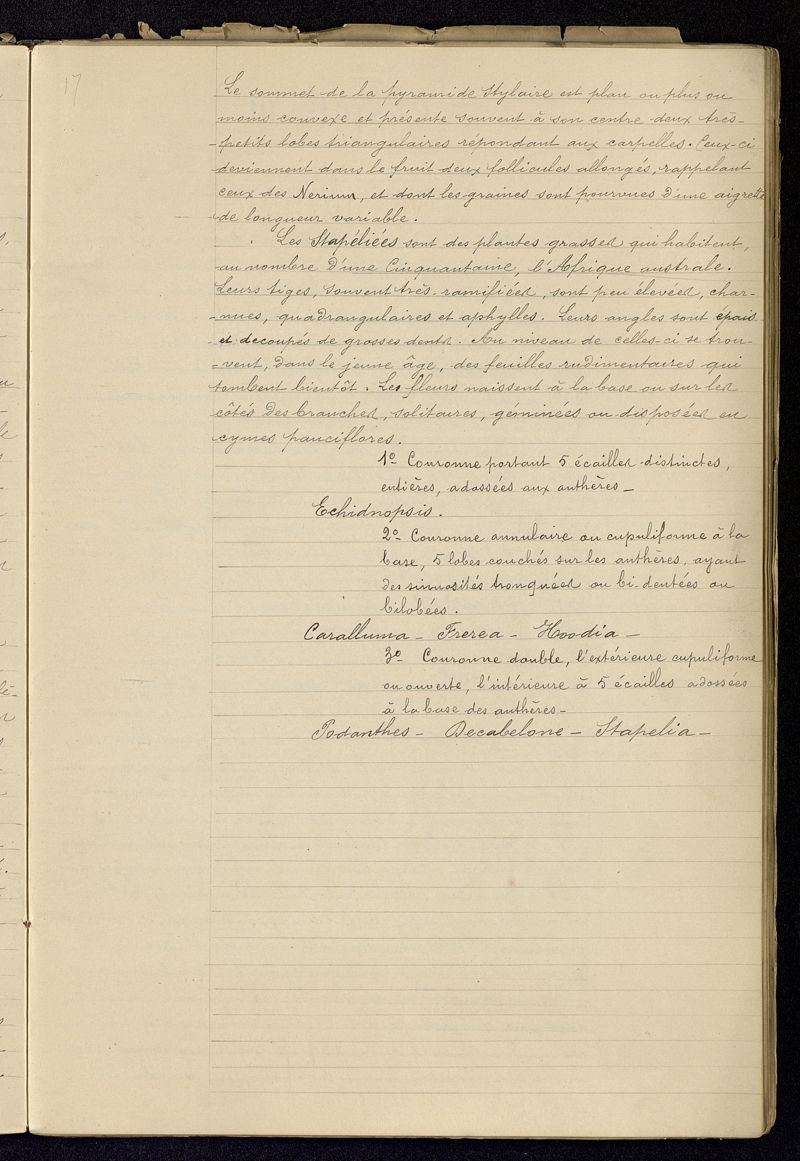 17
Le sommet de la pyramide stylaire est plan ou plus ou
moins convexe et présente souvent à son centre deux très-
-petits lobes triangulaires répondant aux carpelles. Ceux-ci
deviennent dans le fruit deux follicules allongés, rappelant
ceux des Nerium, et dont les graines sont pourvues d'une aigrette
de longueur variable.
Les Stapéliées sont des plantes grasses qui habitent,
au nombre d'une Cinquantaine, l'Afrique australe.
Leurs tiges, souvent très-ramifiées, sont peu élevées, char-
-nues, quadrangulaires et aphylles. Leurs angles sont épais
et decoupés de grosses dents. Au niveau de celles-ci se trou-
-vent, dans le jeune âge, des feuilles rudimentaires qui
tombent bientôt. Les fleurs naissent à la base ou sur les
côtés des branches, solitaires, géminées ou disposées en
cymes pauciflores.
1º Couronne portant 5 écailles distinctes,
entières, adossées aux anthères_
Echidnopsis.
2º Couronne annulaire ou cupuliforme à la
base, 5 lobes couchés sur les anthères, ayant
des sinuosités tronquées ou bi-dentées ou
bilobées.
Caralluma _ Frerea _ Hoodia _
3º Couronne double, l'extérieure cupuliforme
ou ouverte, l'intérieure à 5 écailles adossées
à la base des anthères_
Podanthes _ Decabelone _ Stapelia _